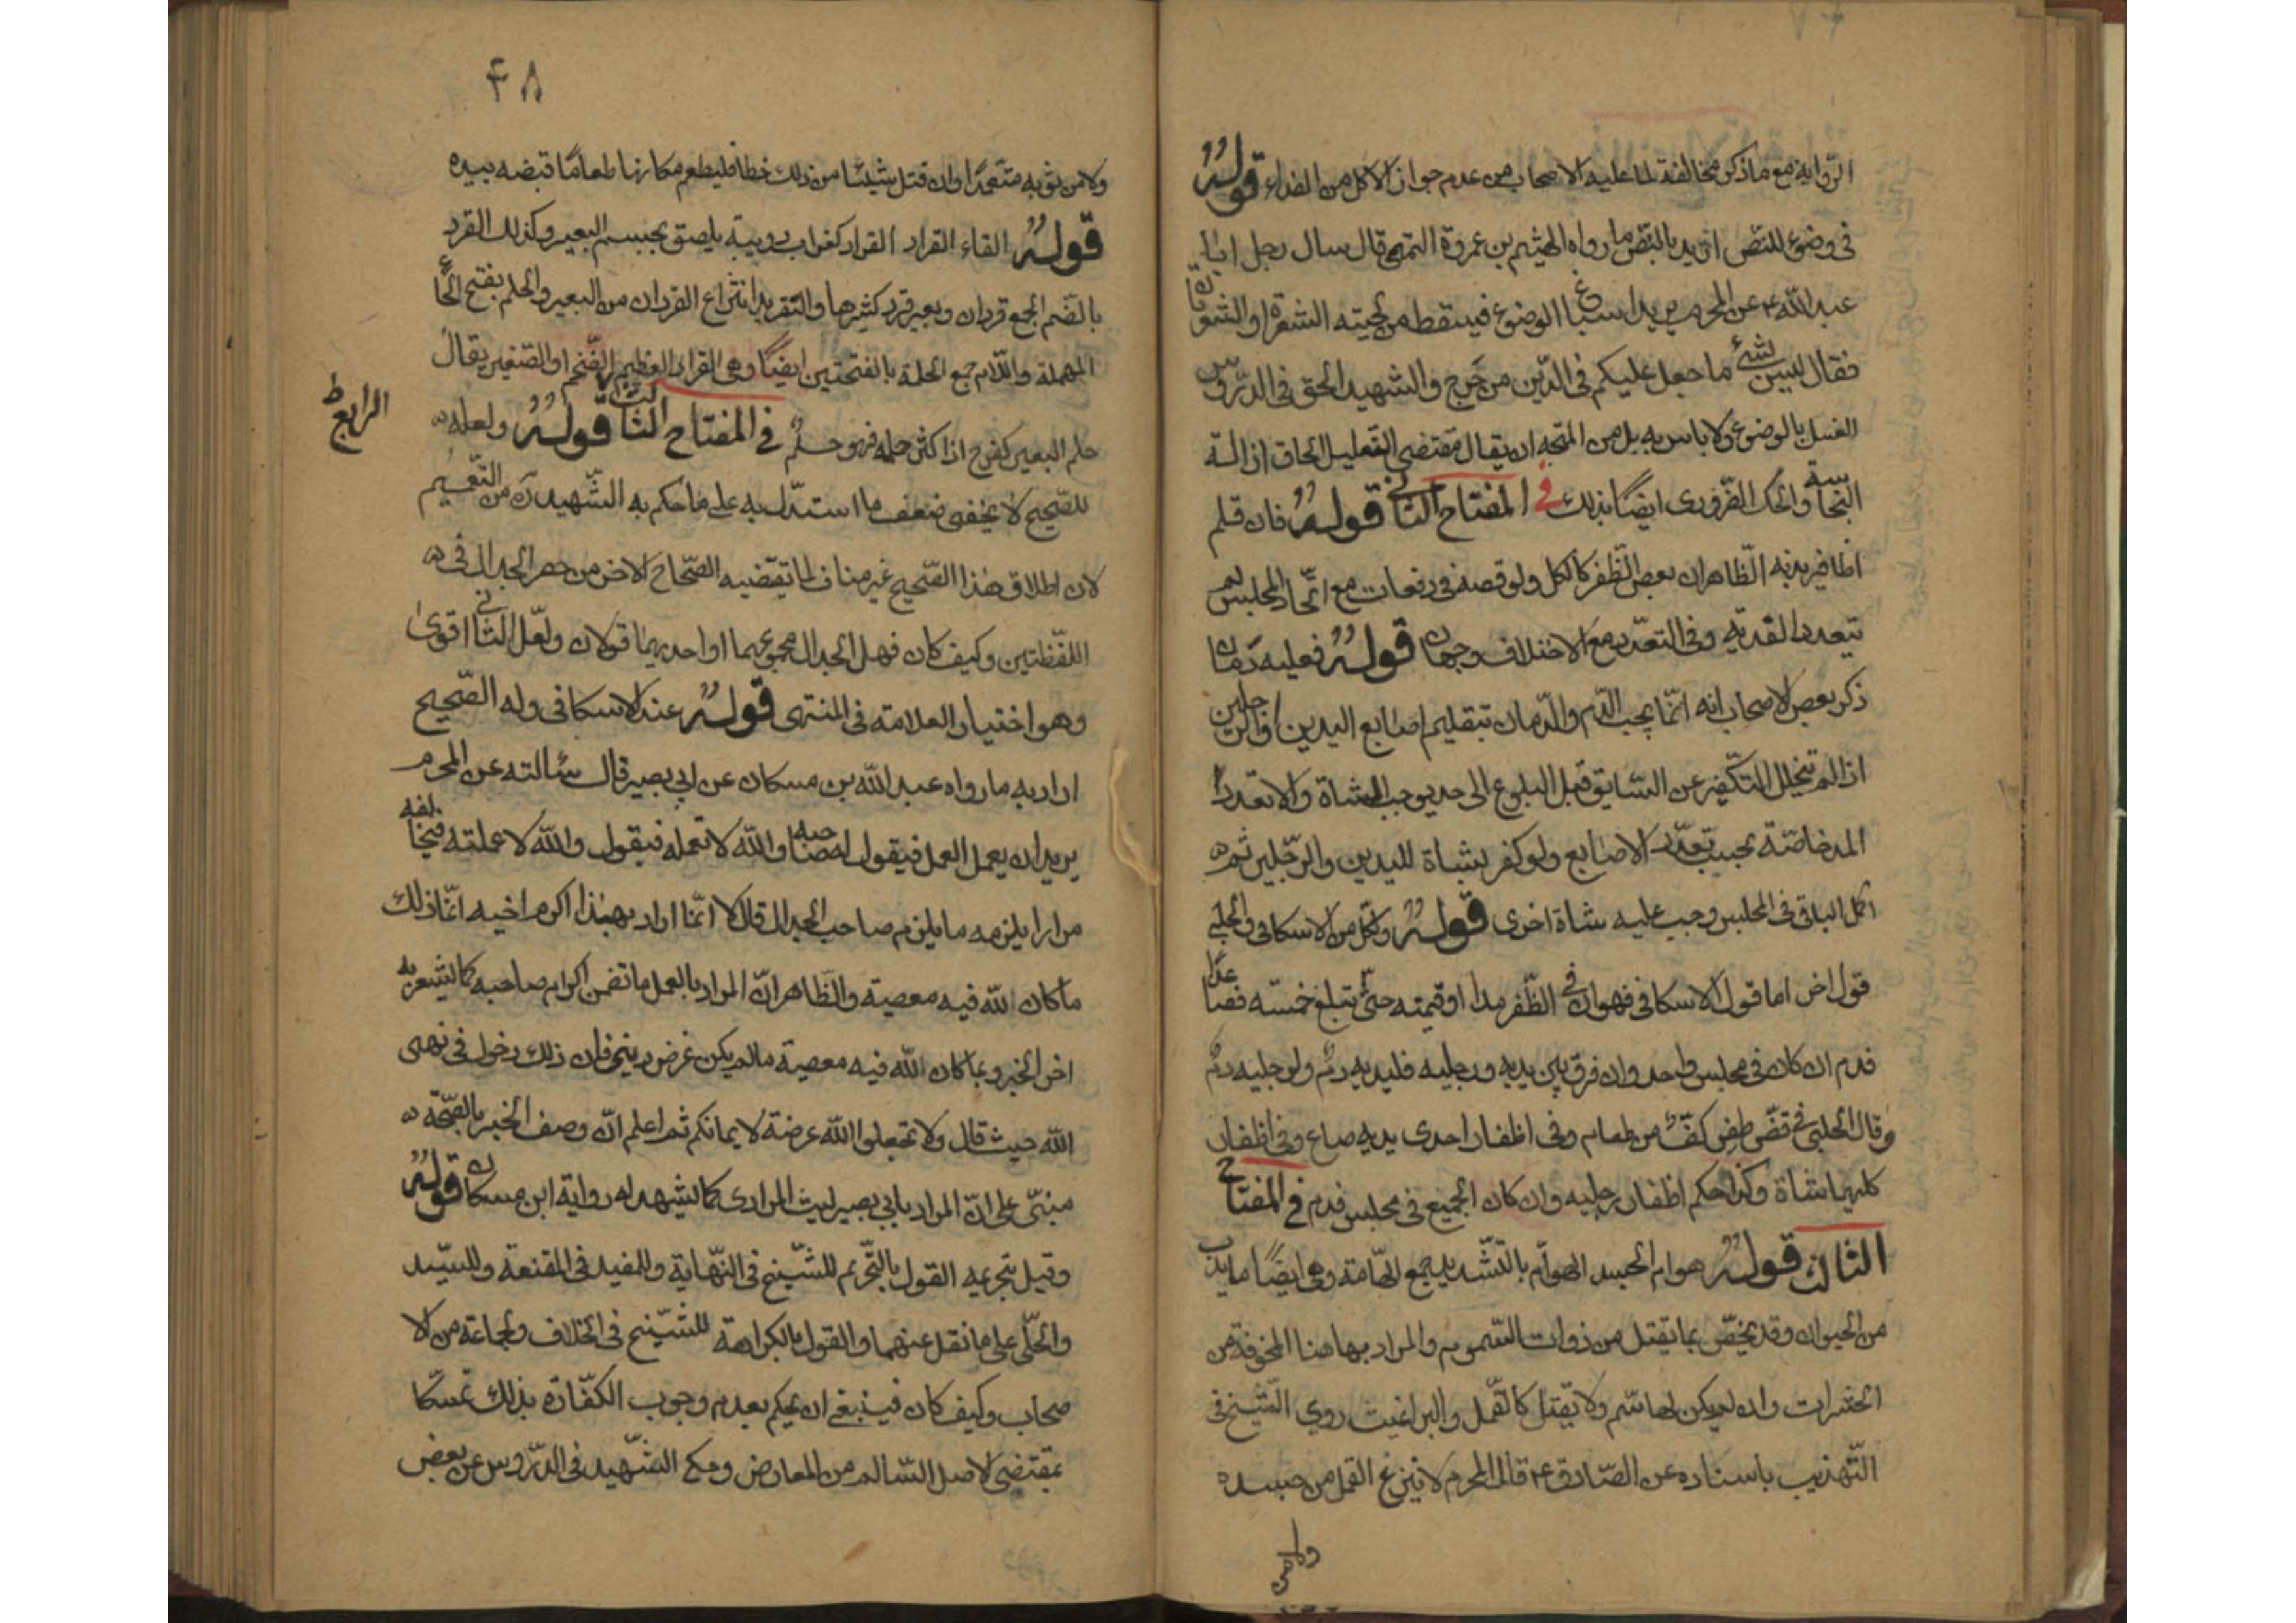 الرواية مع ما ذكر مخالفة لما عليه الاصحاب من عدم جواز الاكل من الفداء قوله
في وضوء للنص اريد بالنص ما رواه الهيثم بن عروة التميمي قال سال رجل ابا
عبد الله ع عن المحرم يريد اسباغ الوضوء فيسقط من لحيته الشعرة او الشعرتان
فقال ليس بشئ ما جعل عليكم في الدين من حرج والشهيد الحق في الدروس
الغسل بالوضوء ولا باس به بل من المتجه ان يقال مقتضى التعليل الحاق ازالة
النجاسة والحك الضروري ايضا بذلك في المفتاح الثاني قوله فان قلم
اظافير يديه الظاهر ان بعض الظفر كالكل ولو قصه في دفعات مع اتحاد المجلس لم
تتعدد الفدية وفي التعدد مع الاختلاف وجهان قوله فعليه دمان
ذكر بعض الاصحاب انه انما يجب الدم والدمان بتقليم اصابع اليدين او الرجلين
اذا لم يتخلل التكفير عن السابق قبل البلوغ الى حد يوجب الشاة والا تعدد
المد خاصة بحسب تعدد الاصابع ولو كفر بشاة لليدين والرجلين ثم
اكمل الباقي في المجلس وجب عليه شاة اخرى قوله ولكل من الاسكافي والحلبي
قول اخر اما قول الاسكافي فهو ان في الظفر مدا او قيمته حتى تبلغ خمسة فصاعدا
فدم ان كان في مجلس واحد وان فرق بين يديه ورجليه فليديه دم ولرجليه دم
وقال الحلبي في قص ظفر كف من طعام وفي اظفار احدى يديه صاع وفي اظفار
كلتيهما شاة وكذا حكم اظفار رجليه وان كان الجميع في مجلس فدم في المفتاح
الثالث قوله هوام الجسد الهوام بالتشديد جمع الهامة وهي ايضا ما يدب
من الحيوان وقد يخص بما يقتل من ذوات السموم والمراد بها هنا المخوفة من
الحشرات وان لم يكن لها سم ولا يقتل كالقمل والبراغيث روي الشيخ في
التهذيب باسناده عن الصادق ع قال المحرم لا ينزع القمل من جسده
ولا من
۴۸
ولا من ثوبه متعمدا وان قتل شيئا من ذلك خطا فليطعم مكانها طعاما قبضه بيده
قوله القاء القراد القراد كغراب دويبة يلصق بجسم البعير وكذلك القرد
بالضم الجمع قردان وبعير قرد كثيرها والتقريد انتزاع القردان من البعير والحلم بفتح الحاء
المهملة واللام جمع الحلمة بالفتحتين ايضا وهي القراد العظيم الضخم او الصغير يقال
حلم البعير كفرح اذا كثر حلمه فهو حلم في المفتاح الثالث قوله ولعله
الرابع ط
للصحيح لا يخفى ضعف ما استدل به على ما حكم به الشهيد ره من التعميم
لان اطلاق هذا الصحيح غير مناف لما يقتضيه الصحاح الاخر من حصر الجدال في
اللفظتين وكيف كان فهل الجدال مجموعهما او احديهما قولان ولعل الثاني اقوى
وهو اختيار العلامة في المنتهى قوله عند الاسكافي وله الصحيح
اراد به ما رواه عبد الله بن مسكان عن ابي بصير قال سئالته عن المحرم
يريد ان يعمل العمل فيقول له صاحبه والله لا تعمله فيقول والله لاعملنه فيخالفه
مرارا يلزمه ما يلزم صاحب الجدال قال لا انما اراد بهذا اكرام اخيه انما ذلك
ما كان لله فيه معصية والظاهر ان المراد بالعمل ما تضمن اكرام صاحبه كما يشعر به
اخر الخبر وبما كان لله فيه معصية ما لم يكن غرض ديني فان ذلك دخول في نهى
الله حيث قال ولا تجعلوا الله عرضة لايمانكم ثم اعلم ان وصف الخبر بالصحة
مبني على ان المراد بابي بصير ليث المرادى كما يشهد له رواية ابن مسكان قوله
وقيل بتحريمه القول بالتحريم للشيخ في النهاية وللمفيد في المقنعة وللسيد
والحلي على ما نقل عنهما والقول بالكراهة للشيخ في الخلاف ولجماعة من الا
صحاب وكيف كان فينبغي ان يحكم بعدم وجوب الكفارة بذلك تمسكا
بمقتضى الاصل السالم من المعارض وحكى الشهيد في الدروس عن بعض